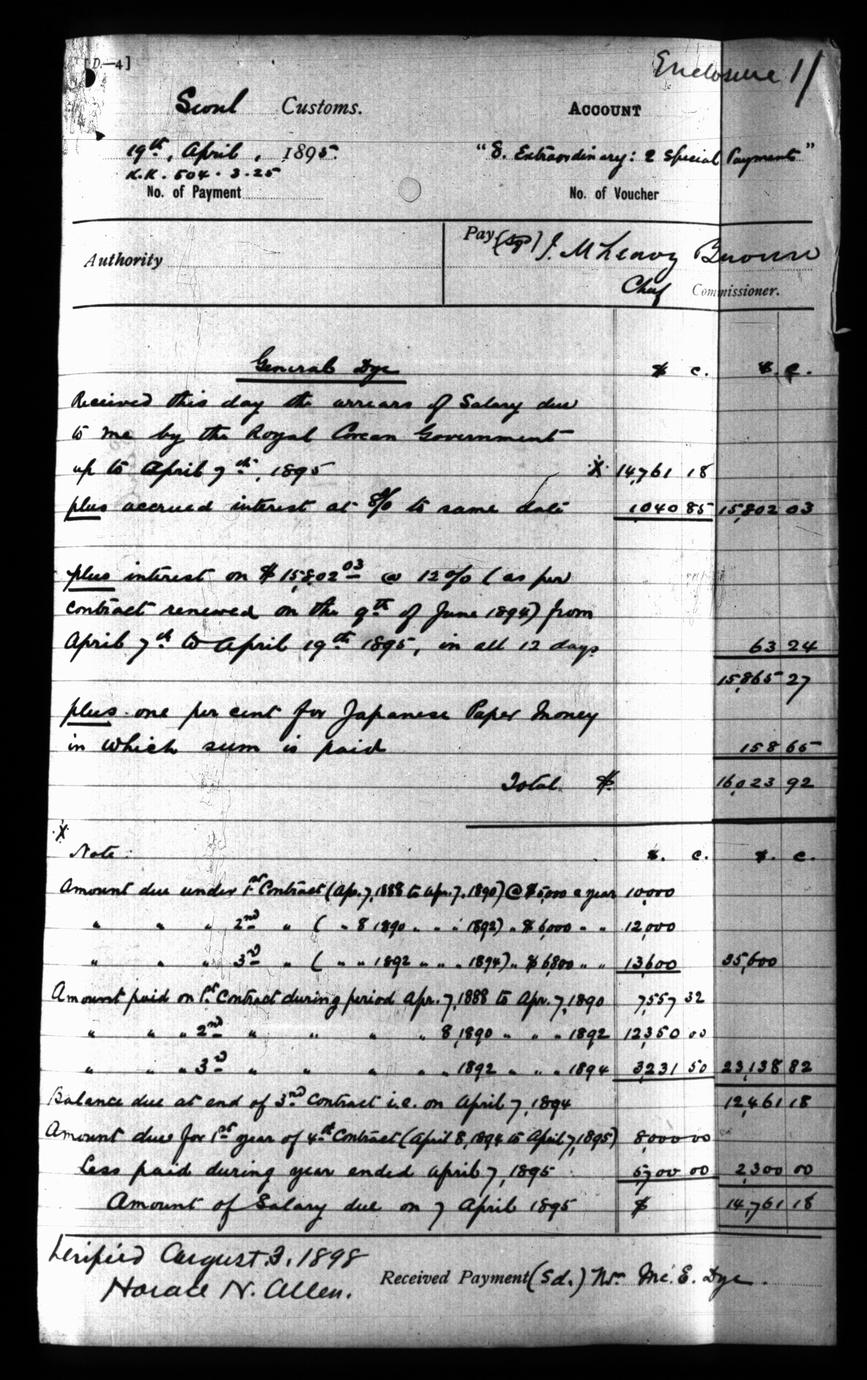 [D.—4]
Enclosure 1/
Seoul Customs.
ACCOUNT
19th, April, 1895.
"8. Extraordinary: 2 Special Payments"
K.K. 504. 3. 25
No. of Payment
No. of Voucher
Authority
Pay (sg) J. McLeavy Brown
Chief Commissioner.
General Dye $ c. $. c.
Received this day the arrears of Salary due
to me by the Royal Corean Government
up to April 7th, 1895 X 14,761 18
plus accrued interest at 8% to same date 1,040 85 15,802 03
plus interest on $15,802 03 @ 12% (as per
contract renewed on the 9th of June 1894) from
April 7th to April 19th 1895, in all 12 days 63 24
15,865 27
plus one per cent for Japanese Paper Money
in which sum is paid 158 65
Total $. 16,023 92
X
Note: $. c. $. c.
Amount due under 1st Contract (Apr. 7, 1888 to Apr. 7, 1890) @ $5,000 a year 10,000
" " " 2nd " ( " 8 1890 " " " 1892) " $6,000 " " 12,000
" " " 3rd " ( " " 1892 " " " 1894) " $6800 " " 13,600 35,600
Amount paid on 1st Contract during period Apr. 7, 1888 to Apr. 7, 1890 7,557 32
" " " 2nd " " " " 8, 1890 " " " 1892 12,350 00
" " " 3rd " " " " " 1892 " " " 1894 3,231 50 23,138 82
Balance due at end of 3rd Contract i.e. on April 7, 1894 12,461 18
Amount due for 1st year of 4th Contract (April 8, 1894 to April 7, 1895) 8,000 00
Less paid during year ended April 7, 1895 5,700 00 2,300 00
Amount of Salary due on 7 April 1895 $ 14,761 18
Verified August 3, 1898
Horace N. Allen.
Received Payment (Sd.) Wm. Mc. E. Dye.